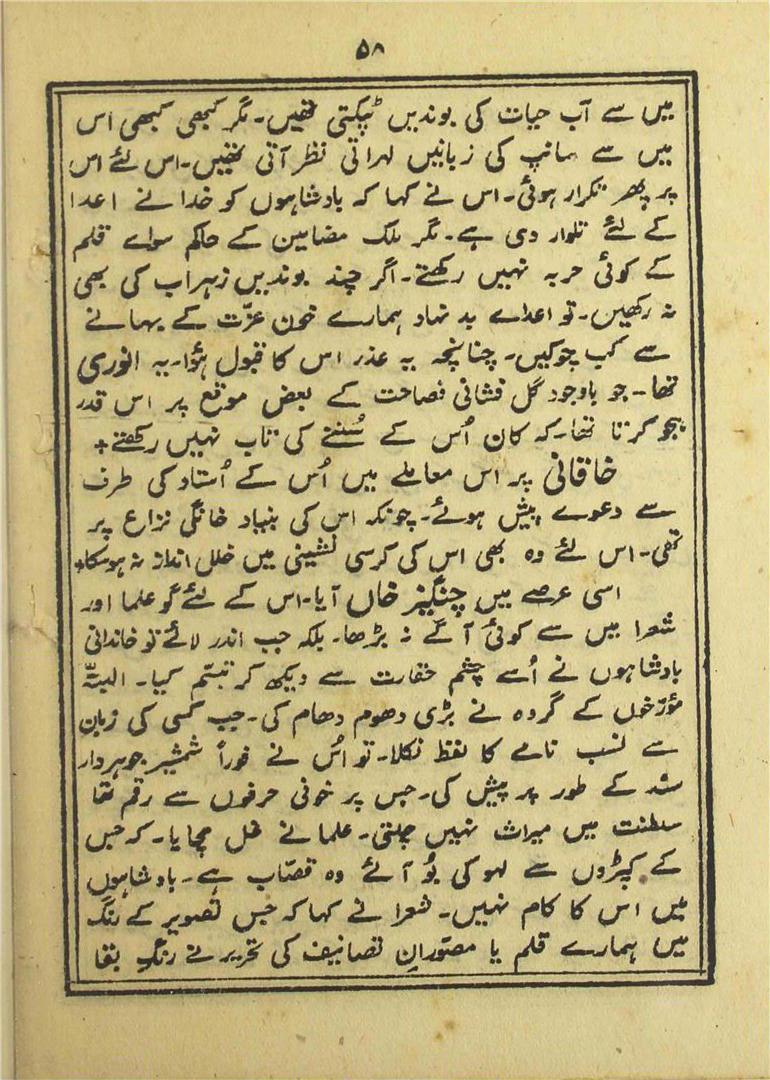 ۵۸
میں سے آب حیات کی بوندیں ٹپکتی تھیں۔ مگر کبھی کبھی اس
میں سے سانپ کی زبانیں لہراتی نظر آتی تھیں۔ اس لئے اس
پر پھر تکرار ہوئی۔ اس نے کہا کہ بادشاہوں کو خدا نے اعدا
کے لئے تلوار دی ہے۔ مگر ملک مضامین کے حاکم سواے قلم
کے کوئی حربہ نہیں رکھتے۔ اگر چند بوندیں زہراب کی بھی
نہ رکھیں۔ تو اعداے بد نہاد ہمارے خون عزّت کے بہانے
سے کب چوکیں۔ چنانچہ یہ عذر اس کا قبول ہؤا۔ یہ انوری
تھا۔ جو باوجود گل فشانی فصاحت کے بعض موقع پر اس قدر
ہجو کرتا تھا۔ کہ کان اُس کے سُننے کی تاب نہیں رکھتے +
خاقانی پر اس معاملے میں اُس کے اُستاد کی طرف
سے دعوے پیش ہوئے۔ چونکہ اس کی بنیاد خانگی نزاع پر
تھی۔ اس لئے وہ بھی اس کی کرسی نشینی میں خلل انداز نہ ہوسکا +
اسی عرصے میں چنگیز خاں آیا۔ اس کے لئے گو علما اور
شعرا میں سے کوئی آگے نہ بڑھا۔ بلکہ جب اندر لائے تو خاندانی
بادشاہوں نے اُسے چشم حقارت سے دیکھ کر تبسّم کیا۔ البتہّ
مؤرّخوں کے گروہ نے بڑی دھوم دھام کی۔ جب کسی کی زبان
سے نسب نامے کا لفظ نکلا۔ تو اُس نے فوراً شمشیر جوہردار
سند کے طور پر پیش کی۔ جس پر خونی حرفوں سے رقم تھا
سلطنت میں میراث نہیں چلتی۔ علما نے غل مچایا۔ کہ جس
کے کپڑوں سے لہو کی بُو آئے وہ قصّاب ہے۔ بادشاہوں
میں اس کا کام نہیں۔ شعرا نے کہا کہ جس تصویر کے رنگ
میں ہمارے قلم یا مصوّرانِ تصانیف کی تحریر نے رنگِ بقا